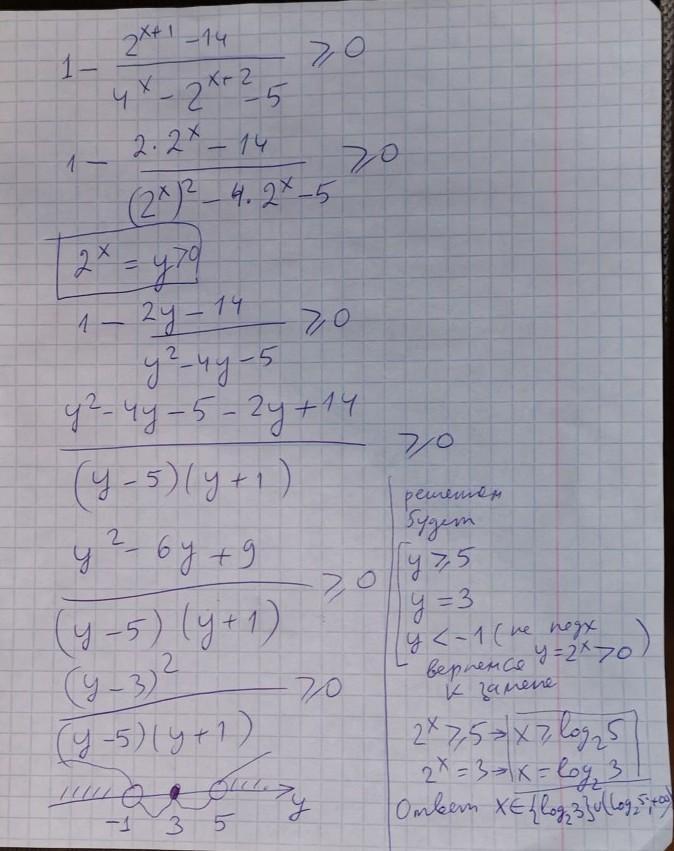 1 - (2^(x+1) - 14)/(4^x - 2^(x+2) - 5) ⩾ 0
1 - (2·2^x - 14)/((2^x)^2 - 4·2^x - 5) ⩾ 0
2^x = y > 0
1 - (2y - 14)/(y^2 - 4y - 5) ⩾ 0
(y^2 - 4y - 5 - 2y + 14)/((y - 5)(y + 1)) ⩾ 0
(y^2 - 6y + 9)/((y - 5)(y + 1)) ⩾ 0
(y - 3)^2/((y - 5)(y + 1)) ⩾ 0
-1 3 5 y
решением
будет
y ⩾ 5
y = 3
y < -1 (не подх
y = 2^x > 0)
вернемся
к замене
2^x ⩾ 5 → x ⩾ log_2 5
2^x = 3 → x = log_2 3
Ответ x ∈ {log_2 3} ∪ (log_2 5; +∞)